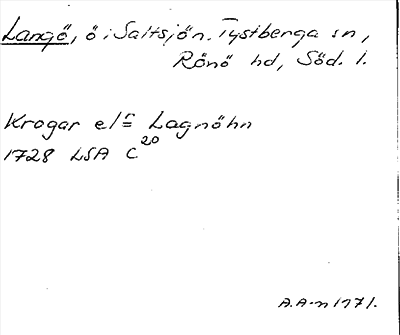 Langö, ö i Saltsjön. Tystberga sn,
Rönö hd, Söd. l.
Krogar elr Lagnöhn
1728 LSA C20
A.A-n 1971.